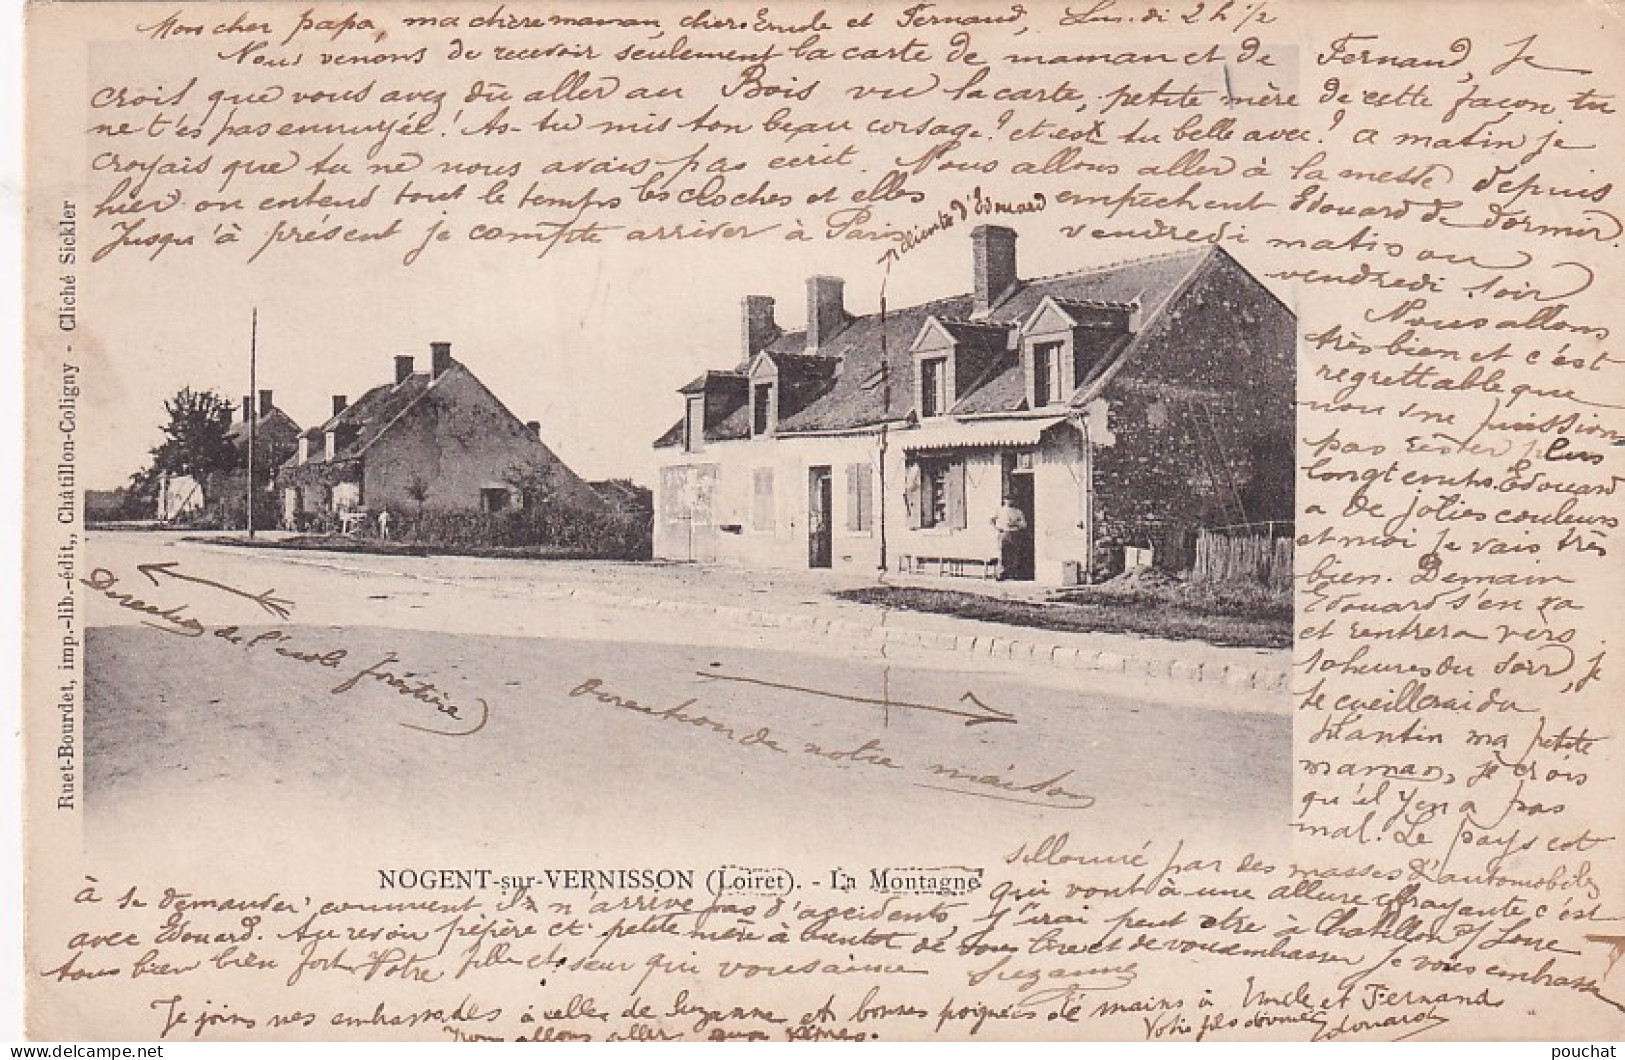 Mon cher papa, ma chère maman, chers Emile et Fernand, Lundi 2 h 1/2
Nous venons de recevoir seulement la carte de maman et de Fernand, Je
crois que vous avez dû aller au Bois vu la carte, petite mère de cette façon tu
ne t'es pas ennuyée! As-tu mis ton beau corsage? et es tu belle avec? a matin je
croyais que tu ne nous avais pas ecrit. Nous allons aller à la messe depuis
hier on entend tout le temps les cloches et elles empechent Edouard de dormir.
Jusqu'à présent je compte arriver à Paris vendredi matin ou
vendredi soir
cliente d'Edouard
Nous allons
très bien et c'est
regrettable que
nous ne puissions
pas rester plus
longtemps. Edouard
a de jolies couleurs
et moi je vais très
bien. Demain
Edouard s'en va
et rentrera vers
10 heures du soir, je
te cueillerai du
plantin ma petite
maman, je crois
qu'il y en a pas
mal. Le pays est
sillonné par des masses d'automobiles
qui vont à une allure effrayante, c'est
à se demander comment il n'arrive pas d'accidents, J'irai peut être à Chatillon s/ Loire
avec Edouard. Au revoir pépère et petite mère à bientot de vous lire et de vous embrasser Je vous embrasse
tous bien bien fort, Votre fille et soeur qui vous aime Suzanne
Je joins mes embrassades à celles de Suzanne et bonnes poignées de mains à Emile et Fernand
Votre fils dévoué Edouard
Nous allons aller aux vêpres.
Direction de l'école forestière
Direction de notre maison
NOGENT-sur-VERNISSON (Loiret). - La Montagne
Ruet-Bourdet, imp.-lib.-édit., Châtillon-Coligny - Cliché Sickler
pouchat